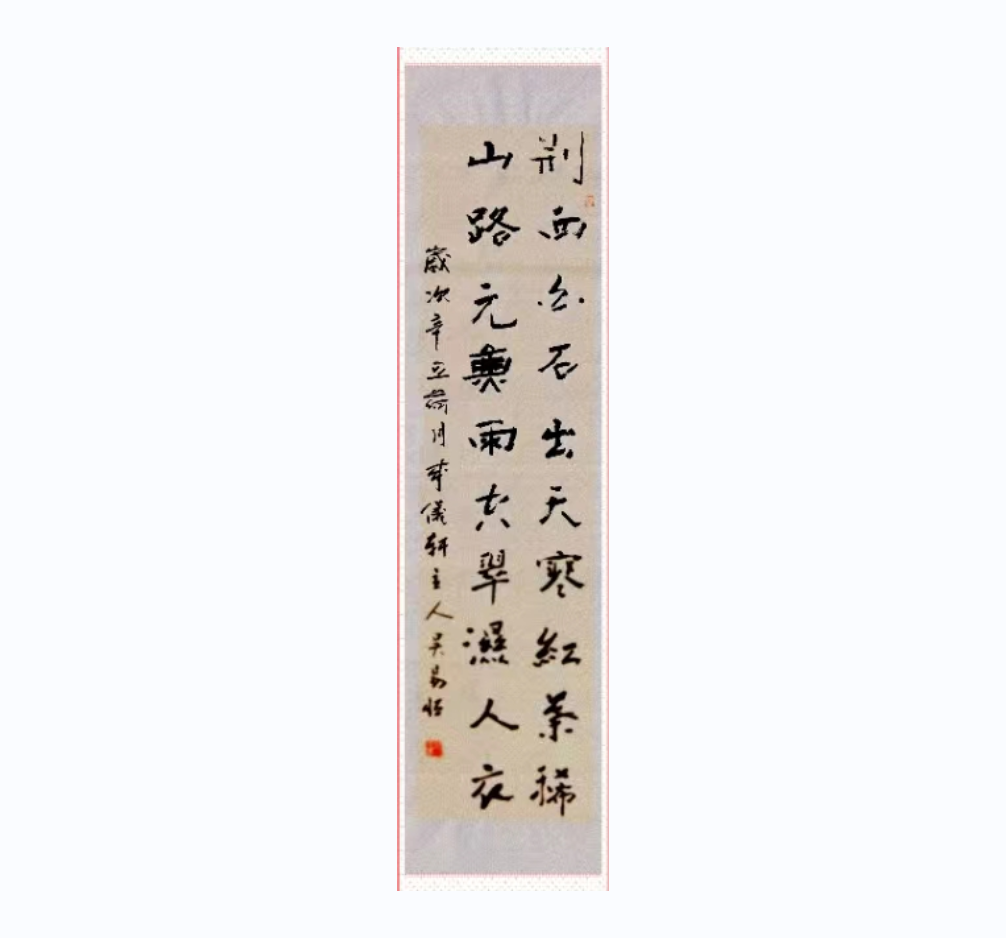 荆西白石出天寒紅葉稀
山路元無雨空翠濕人衣
歲次辛丑荷月儀軒主人吴易